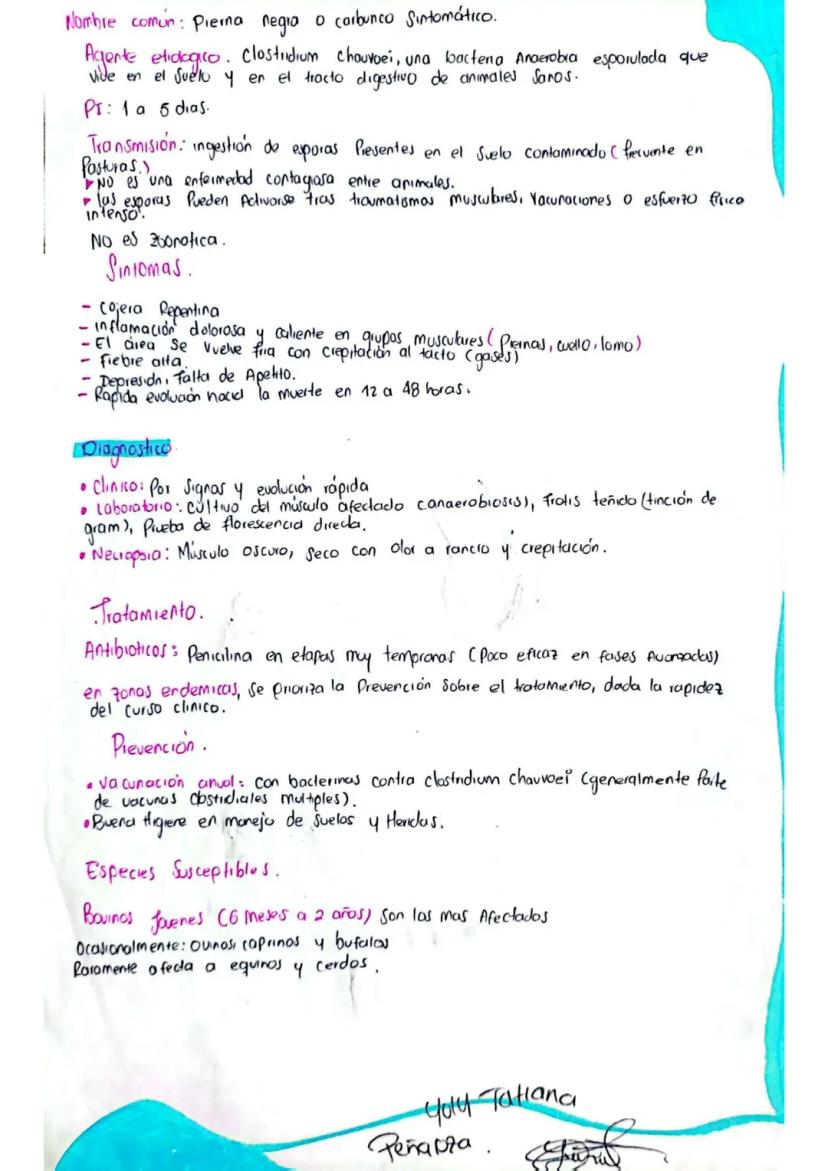 Nombre común: Pierna negra o carbunco Sintomático.
Agente etiologico. Clostridium Chauvoei, una bacteria Anaerobia esporulada que
vive en el suelo y en el tracto digestivo de animales Sanos.
PI: 1 a 5 dias.
Transmisión: ingestión de esporas Presentes en el Suelo contaminado (frecuente en
Pasturas.)
NO es una enfermedad contagiosa entre animales.
las esporas Pueden Activarse tras traumatismos musculares, Vacunaciones o esfuerzo físico
intenso.
NO es zoonotica.
Sintomas.
- Cojera Repentina
- inflamación dolorosa y caliente en grupos musculares (Piernas, cuello, lomo)
- El área se vuelve fria con crepitación al tacto (gases)
- fiebre alta.
- Depresión, falta de Apetito.
- Rapida evolución hacia la muerte en 12 a 48 horas.
Diagnostico
• Clinico: Por Signos y evolución rápida
• Laboratorio: Cultivo del músculo afectado (anaerobiosis), Frotis teñido (tinción de
gram), Prueba de florescencia directa.
• Necropsia: Músculo oscuro, seco con olor a rancio y crepitación.
Tratamiento.
Antibioticos: Penicilina en etapas muy tempranas (Poco eficaz en fases Avanzadas)
en zonas endemicas, se prioriza la Prevención Sobre el tratamiento, dada la rapidez
del curso clinico.
Prevención.
• Vacunación anual: con bacterinas contra clostridium chauvoei (generalmente Parte
de vacunas clostridiales multiples).
• Buena Higiene en manejo de Suelos y Heridas.
Especies Susceptibles.
Bovinos Jovenes (6 meses a 2 años) Son los mas Afectados
Ocasionalmente: ovinos, caprinos y bufalos
Raramente afecta a equinos y Cerdos.
Yuly Tatiana